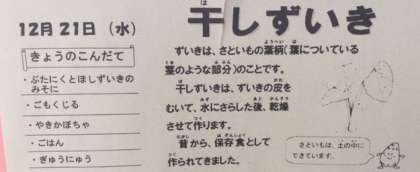 12月21日（水）
きょうのこんだて
・ぶたにくとほしずいきの
みそに
・ごもくじる
・やきかぼちゃ
・ごはん
・ぎゅうにゅう
干しずいき
ずいきは、さといもの葉柄（葉についている
茎のような部分）のことです。
干しずいきは、ずいきの皮を
むいて、水にさらした後、乾燥
させて作ります。
昔から、保存食として
作られてきました。
さといもは、土の中に
できています。